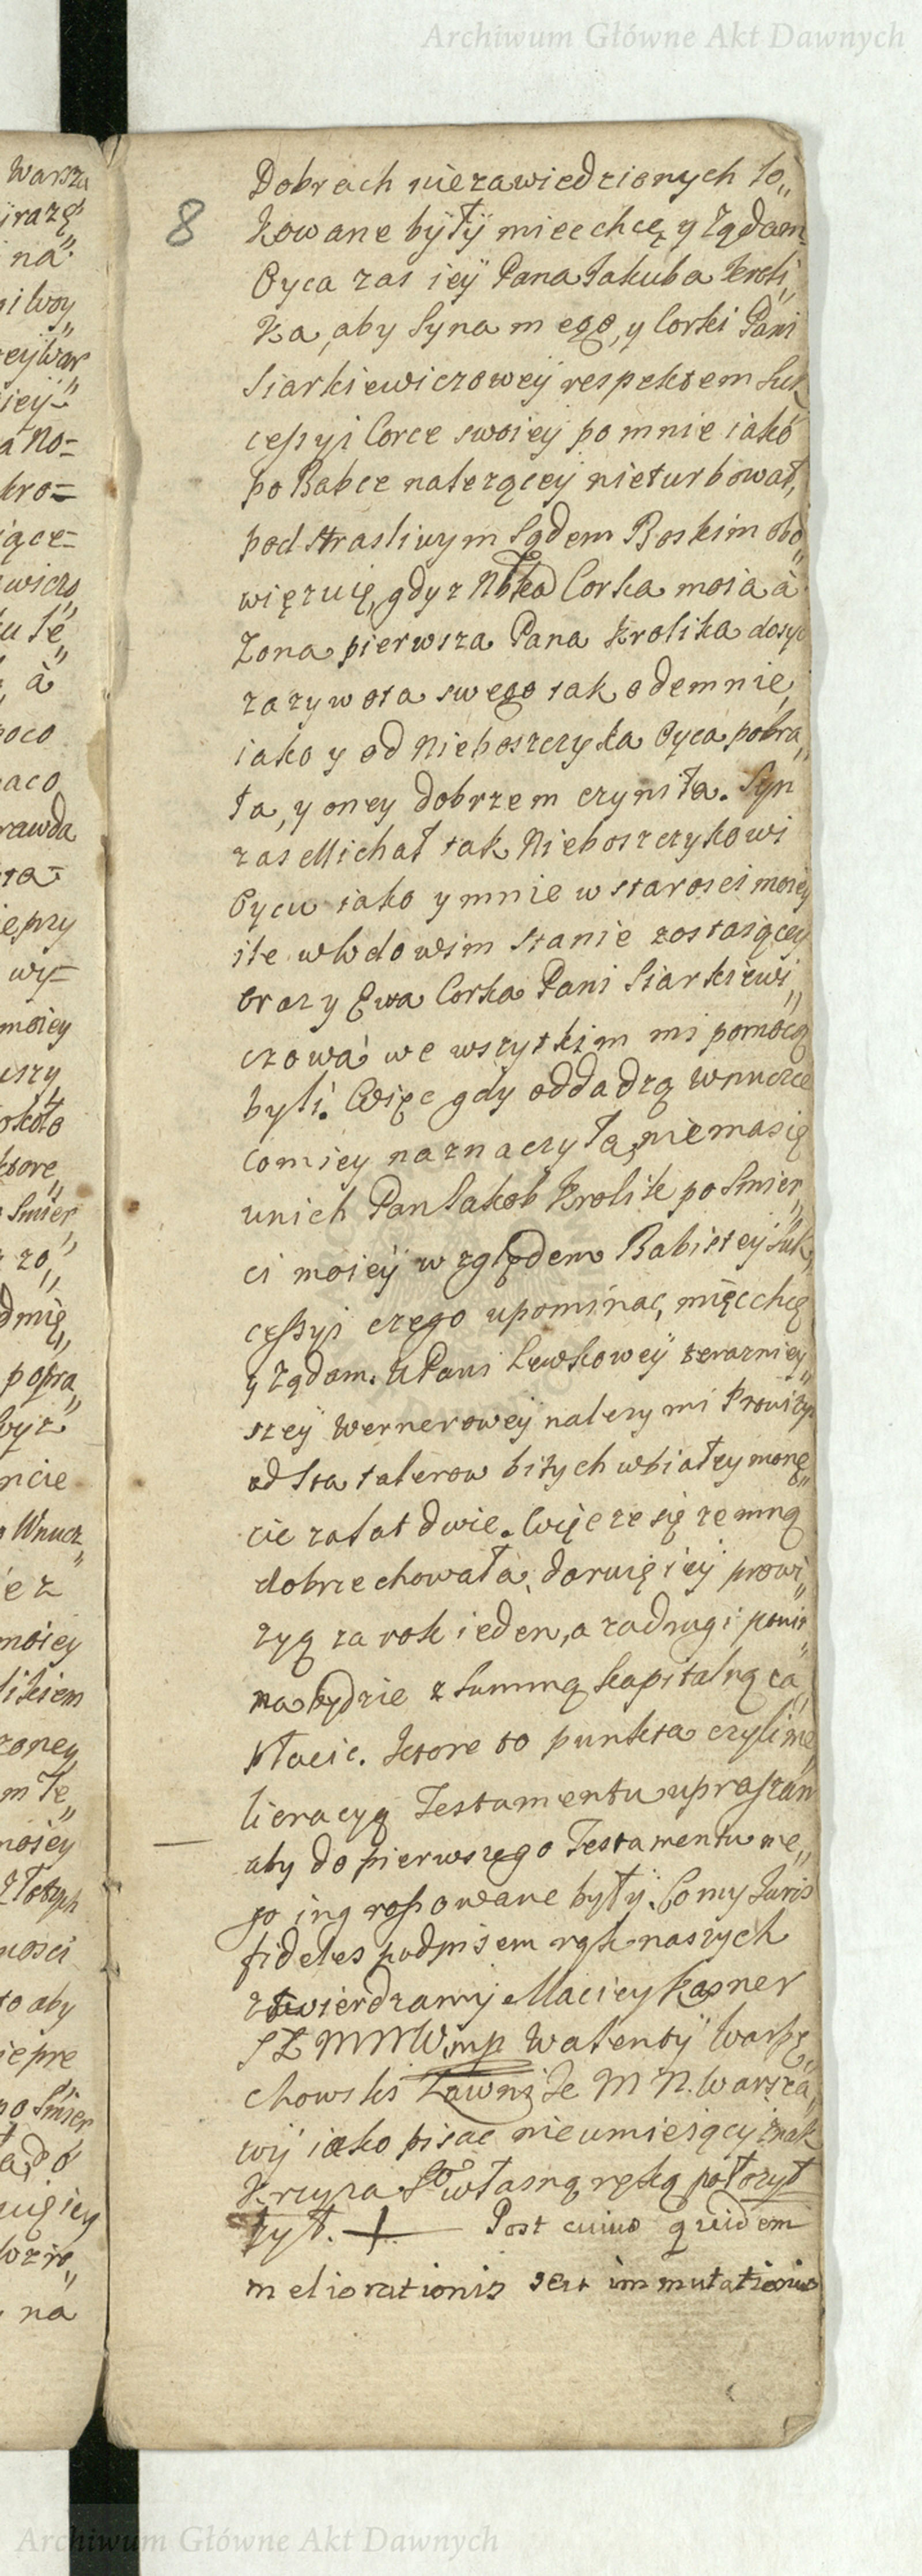 Archiwum Główne Akt Dawnych
8
Dobrach niezawiedzionych lo„
kowane były miec chcę y żądam
Oyca zas iey Pana Jakuba Kroli„
ka, aby Syna mego, y Corki Pani
Siarkiewiczowey respektem Suk
cessyi Corce swoiey po mnie iako
po Babce należącey nieturbował,
pod strasliwym Sądem Boskim obo„
więzuię, gdyz Nbka Corka moia a
Zona pierwsza Pana Krolika dosyc
za zywota swego tak odemnie,
iako y od Nieboszczyka Oyca pobra„
ła, y oney dobrzem czyniła. Syn
zas Michał tak Nieboszczykowi
Oycu iako y mnie w starosci moiey
ile wWdowim Stanie zostaiącey
oraz y Ewa Corka Pani Siarkiewi„
czowa we wszytkim mi pomocą
byli. Więc gdy oddadzą Wnuczce
com iey naznaczyła, niema się
unich Pan Jakob Krolik po Smier„
ci moiey względem Babistey Suk„
cessyi czego upominac, mięc chcę
y żądam. U Pani Lewkowey terazniey„
szey Wernerowey nalezy mi Prowizya
od Sta talerow bitych wbiałey monę„
cie zalat dwie. Więc ze się zemną
dobrze chowała, daruię iey prowi„
zyą za rok ieden, a zadrugi powin„
na będzie z Summą kapitalną za„
płacic. Ktore to punkta czyli me„
lioracyą Testamentu upraszam
aby do pierwszego Testamentu me„
go ingrossowane były. Co my Juris
fideles podpisem rąk naszych
ztwierdzamy Maciey Kasner
SŁ MNW mp Walenty Warpę„
chowski Ławnik Je M N. Warsza„
wy iako pisac nieumieiący znak
Krzyza S° własną ręką położył
żył. + Post cuius quidem
meliorationis seu immutationis
Archiwum Główne Akt Dawnych